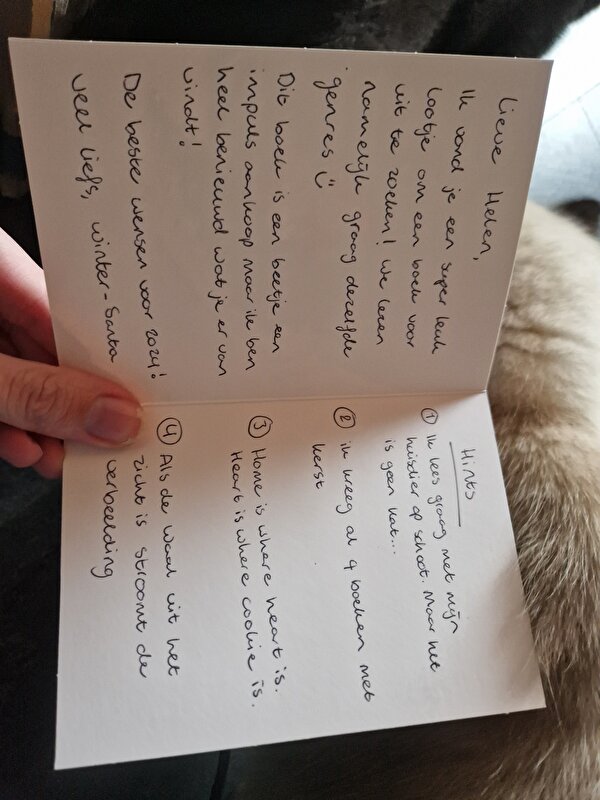 Lieve Helen,
Ik vond je een super leuk
lootje om een boek voor
uit te zoeken! We lezen
namelijk graag dezelfde
genres :)
Dit boek is een beetje een
impuls aankoop maar ik ben
heel benieuwd wat je er van
vindt!
De beste wensen voor 2024!
veel liefs, winter-Santa
Hints
① Ik lees graag met mijn
huisdier op schoot. Maar het
is geen kat...
② ik kreeg al 4 boeken met
kerst
③ Home is where heart is.
Heart is where cookie is.
④ Als de waal uit het
zicht is stroomt de
verbeelding